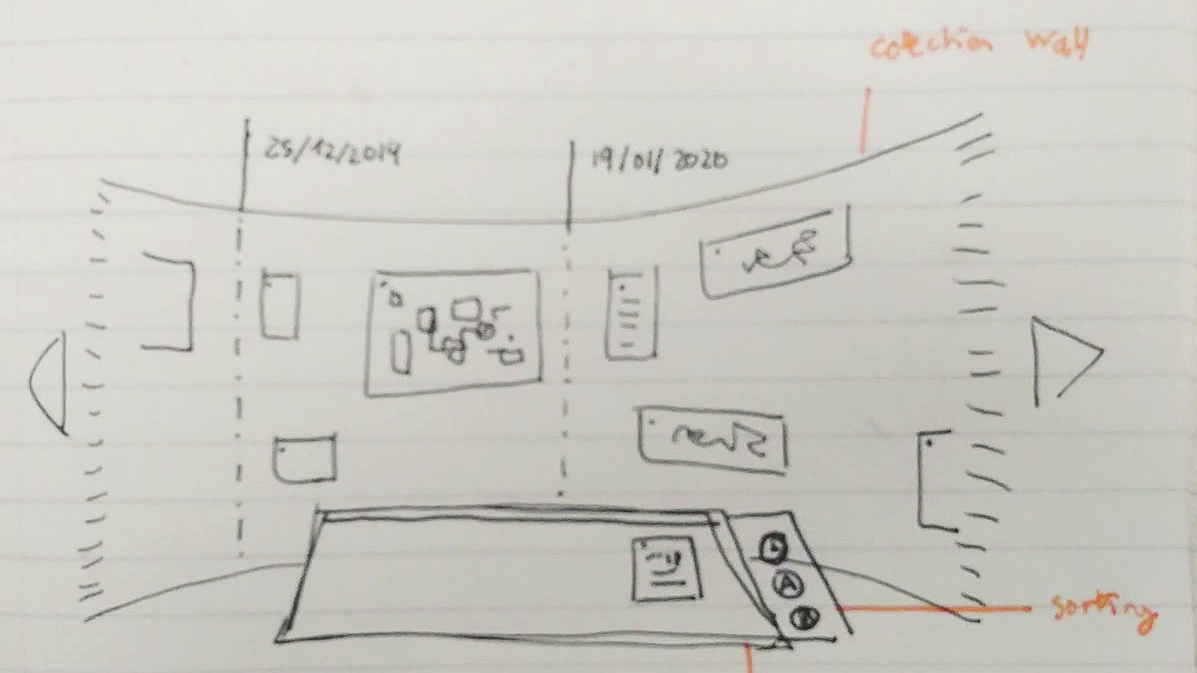 colection wall
25/12/2019
19/01/2020
A
sorting